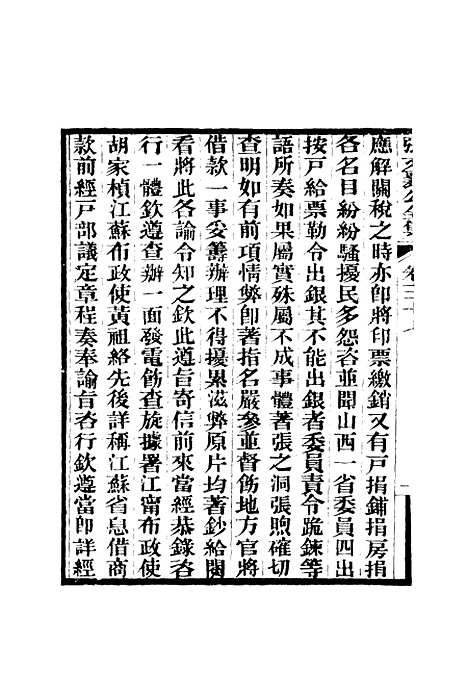 張文襄公全集 卷三十七 一
應解關稅之時亦卽將印票繳銷又有戸捐鋪捐房捐
各名目紛紛騷擾民多怨咨並聞山西一省委員四出
按戸給票勒令出銀其不能出銀者委員責令跪鍊等
語所奏如果屬實殊屬不成事體著張之洞張煦確切
查明如有前項情弊卽著指名嚴參並督飭地方官將
借款一事妥籌辦理不得擾累滋弊原片均著鈔給閱
看將此各諭令知之欽此遵旨寄信前來當經恭錄咨
行一體欽遵查辦一面發電飭查旋據署江甯布政使
胡家楨江蘇布政使黃祖絡先後詳稱江蘇省息借商
款前經戸部議定章程奏奉諭旨咨行欽遵當卽詳經